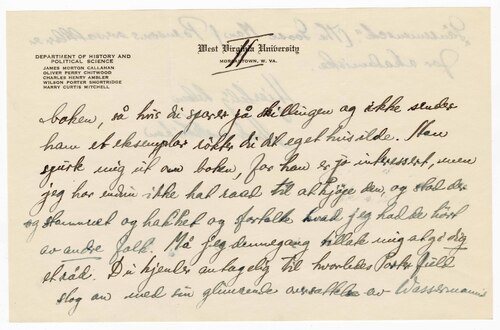 West Virginia University
MORGANTOWN, W. VA.
II
DEPARTMENT OF HISTORY AND
POLITICAL SCIENCE
JAMES MORTON CALLAHAN
OLIVER PERRY CHITWOOD
CHARLES HENRY AMBLER
WILSON PORTER SHORTRIDGE
HARRY CURTIS MITCHELL
boken, så hvis du sparer på skillingen og ikke sender
ham et eksemplar du til eget hus ilde. Han
spurte mig ut om boken, for han er jo interessert, men
jeg har endnu ikke hat raad til at kjøpe den, og stod der
og stammet og hakket og fortalte hvad jeg hadde hørt
av andre folk. Må jeg dennegang tillate mig at gi dig
et råd. Du kjender antagelig til hvorledes Porterfield
slog an med sin glimrende oversættelse av Wassermanns